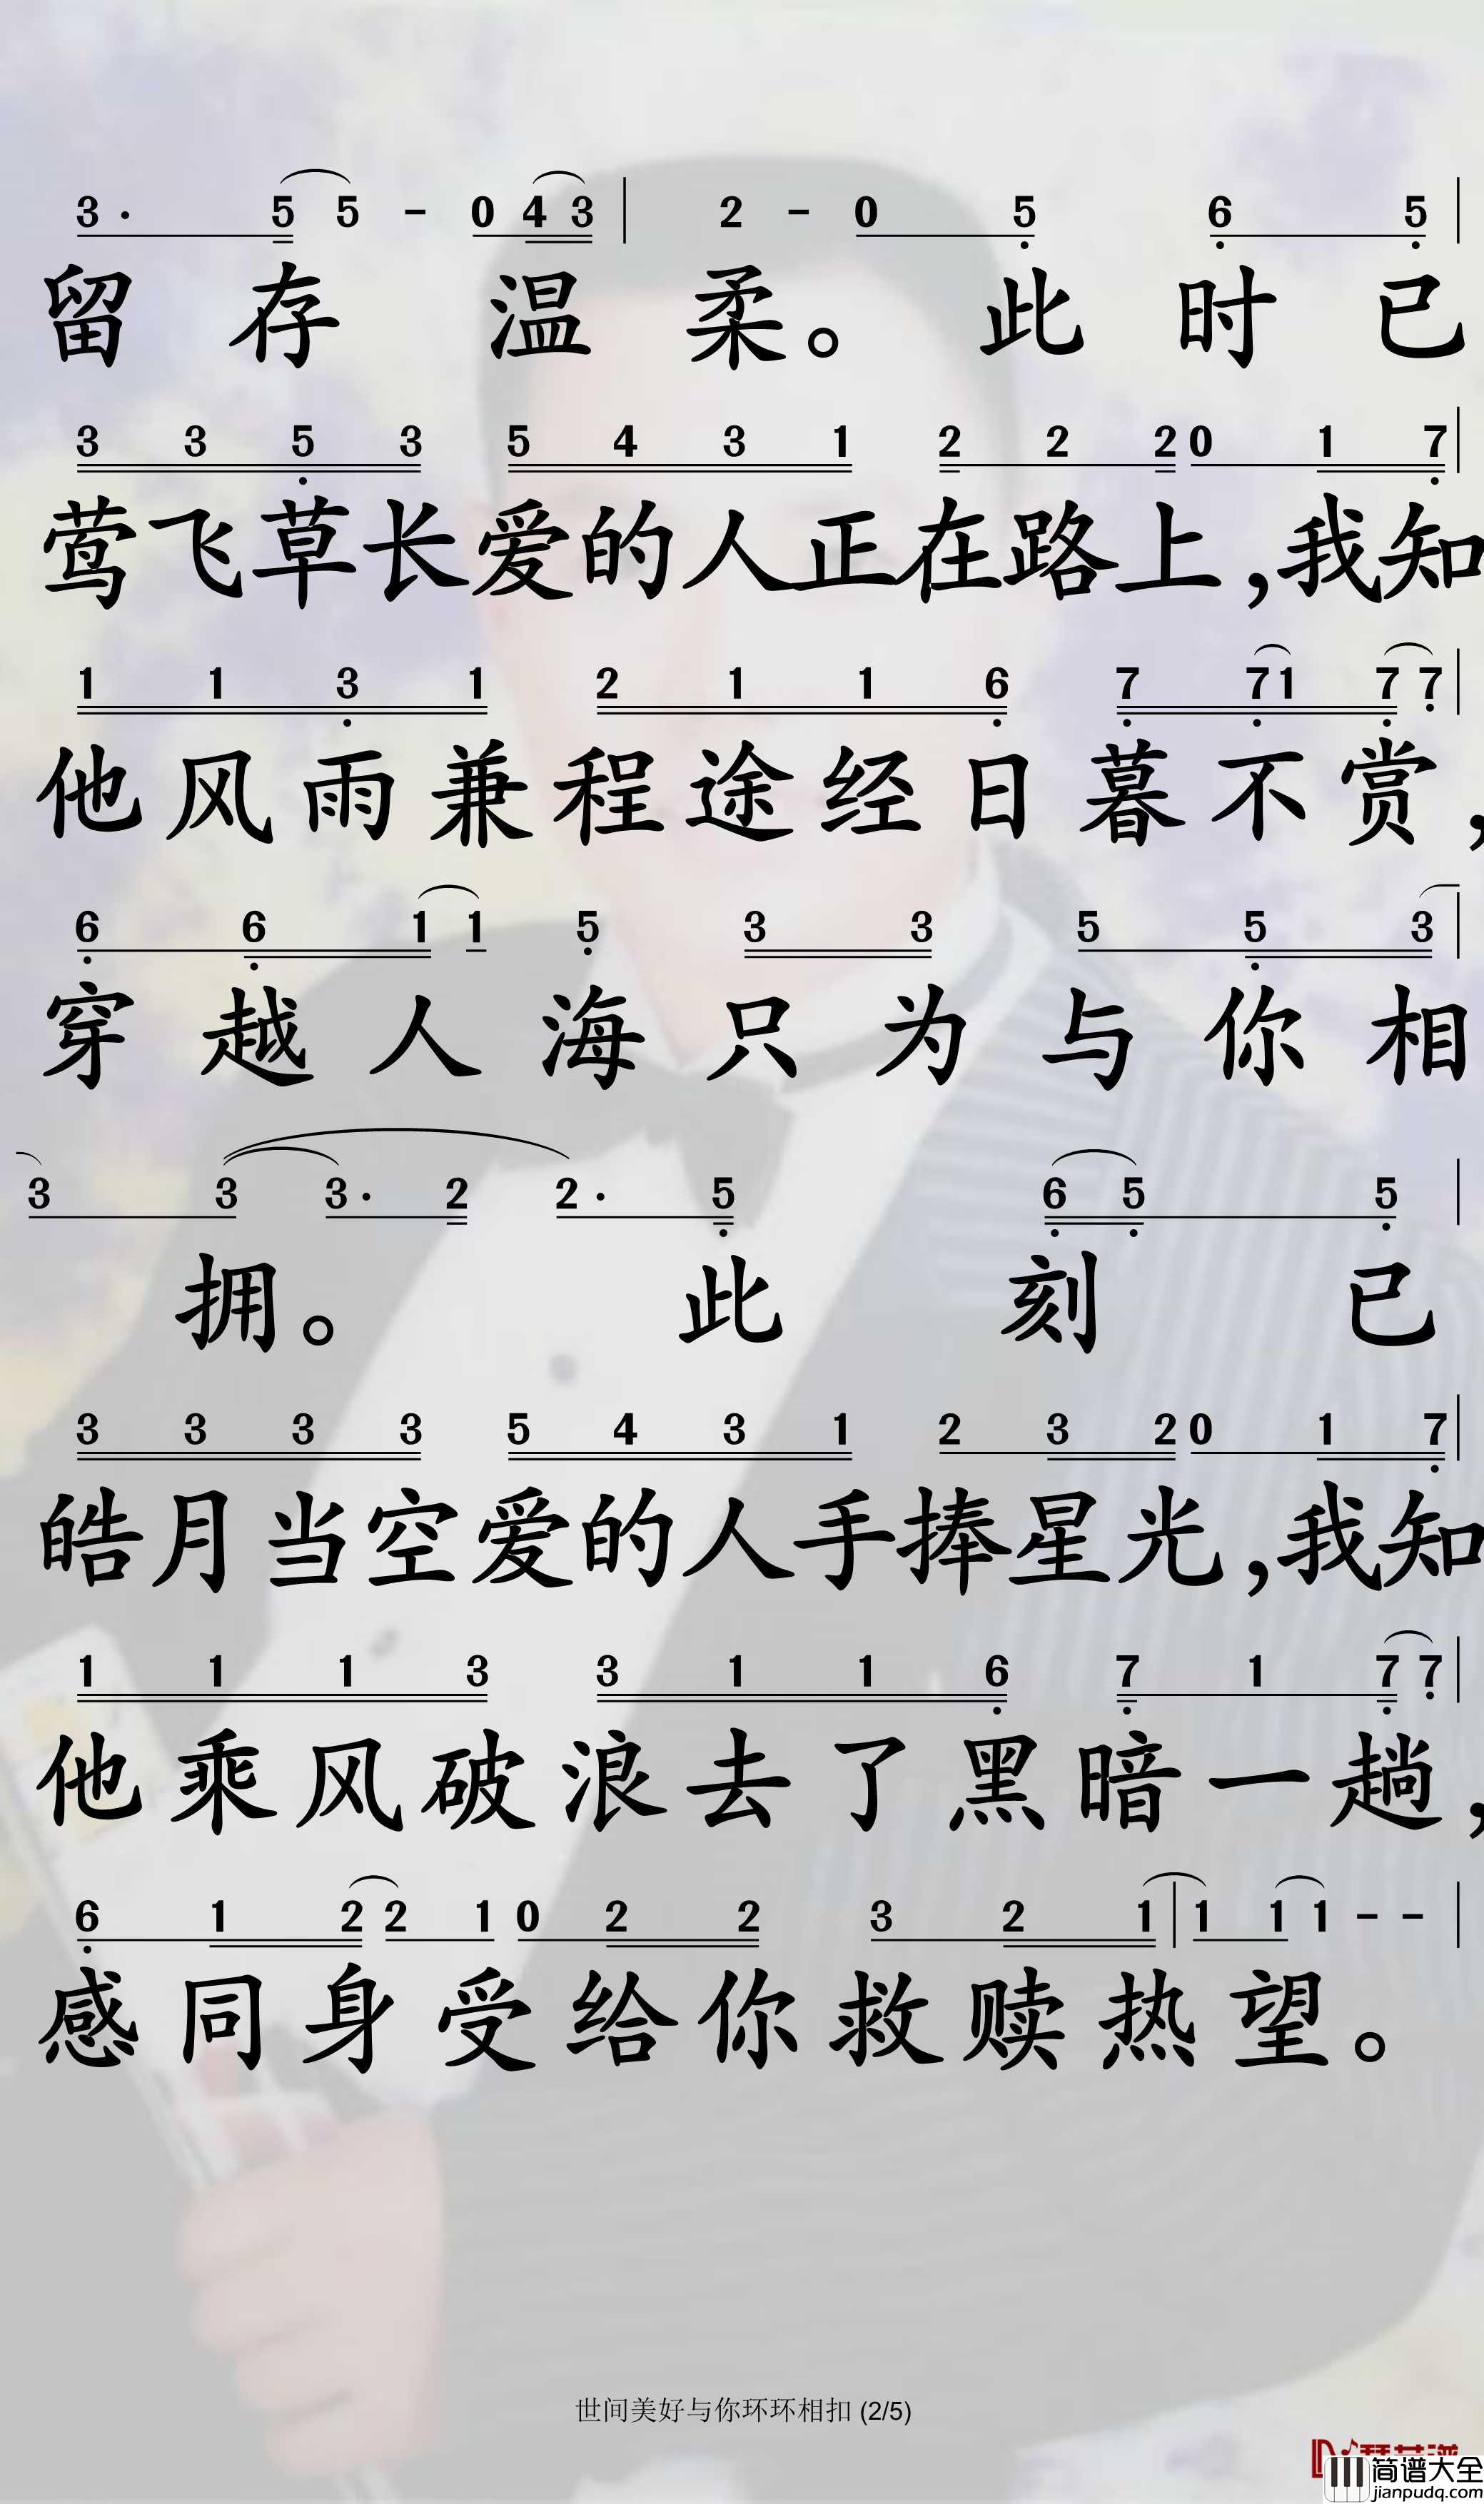 3· 5 5 - 0 4 3 | 2 - 0 5 6 5 |
留存温柔。此时已
3 3 5 3 5 4 3 1 2 2 2 0 1 7 |
莺飞草长爱的人正在路上,我知
1 1 3 1 2 1 1 6 7 7 1 7 7 |
他风雨兼程途经日暮不赏,
6 6 1 1 5 3 3 5 5 3 |
穿越人海只为与你相
3 3 3· 2 2· 5 6 5 5 |
拥。此刻已
3 3 3 3 5 4 3 1 2 3 2 0 1 7 |
皓月当空爱的人手捧星光,我知
1 1 1 3 3 1 1 6 7 1 7 7 |
他乘风破浪去了黑暗一趟,
6 1 2 2 1 0 2 2 3 2 1 | 1 1 1 - - |
感同身受给你救赎热望。
世间美好与你环环相扣 (2/5)
简谱大全
jianpudq.com